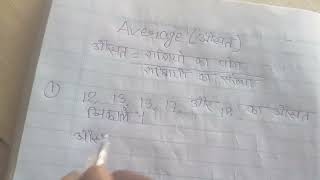 Average (औसत)
औसत = राशियो का योग
राशियो का संख्या
① 12, 13, 13, 17, और 19 का औसत
निकाले।
औस